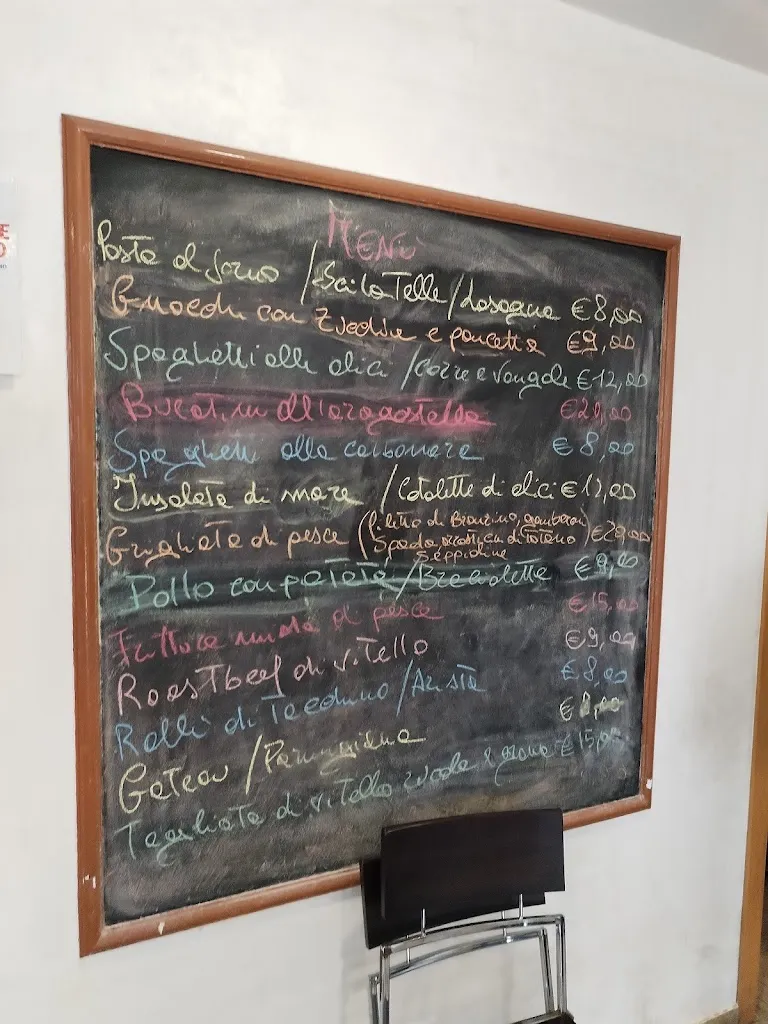 MENÙ
Pasta al forno / Scilatelle / Lasagna €8,00
Gnocchi con zucchine e pancetta €9,00
Spaghetti alle alici / cozze e vongole €12,00
Bucatini all'aragostella
Spaghetti alla carbonara €8,00
Insalata di mare / Cotolette di alici €12,00
Grigliata di pesce (filetto di Branzino, gamberoni
Spada
Seppioline
Pollo con patate / Braciolette €9,00
Frittura mista di pesce €15,00
Roastbeef di vitello €9,00
Rollè di Tacchino / Arista €8,00
Gateau / Parmigiana €8,00
Tagliata di vitello rucola e grana €15,00